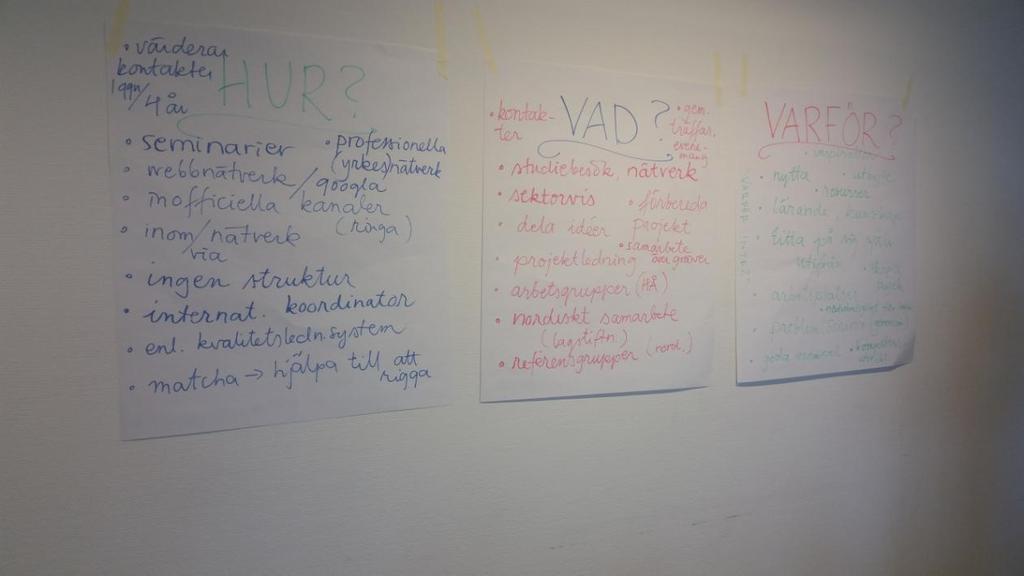 HUR?
• värdera
kontakter
1 ggn/
4 år
• seminarier
• professionella
(yrkes)nätverk
• webbnätverk/googla
• inofficiella kanaler
(ringa)
• inom/nätverk
via
• ingen struktur
• internat. koordinator
• enl. kvalitetsledn.system
• matcha → hjälpa till att
rigga
VAD?
• kontak-
ter
• gem.
träffar,
evene-
mang
• studiebesök, nätverk
• sektorvis
• förbereda
projekt
• dela idéer
• samarbete
över gränser
• projektledning
• arbetsgrupper (HÅ)
• nordiskt samarbete
(lagstiftn.)
• referensgrupper (nord.)
VARFÖR?
• inspiration
• nytta
• utbyte
• resurser
• lärande, kunskap
• titta på sig själv
utifrån